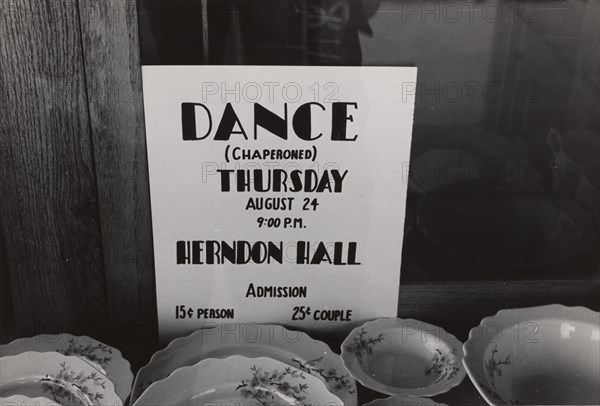 DANCE
(CHAPERONED)
THURSDAY
AUGUST 24
9:00 P.M.
HERNDON HALL
ADMISSION
15¢ PERSON 25¢ COUPLE
PHOTO 12